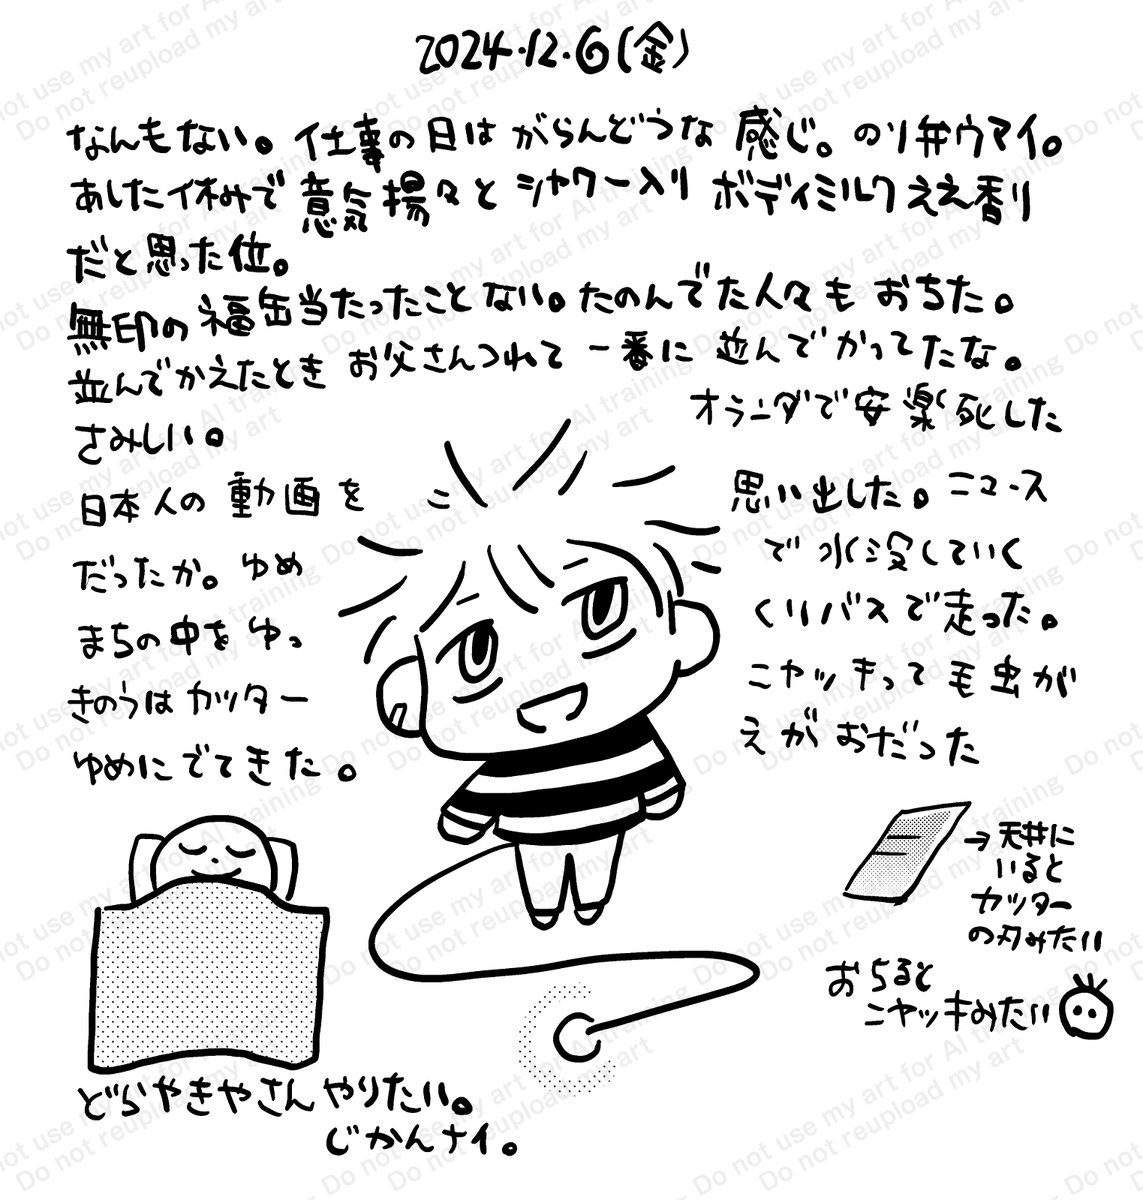 2024.12.6(金)
なんもない。仕事の日はがらんどうな感じ。のり弁ウマイ。
あした休みで意気揚々とシャワー入りボディミルクええ香り
だと思った位。
無印の福缶当たったことない。たのんでた人々もおちた。
並んでかえたときお父さんつれて一番に並んでかってたな。
さみしい。
オランダで安楽死した
日本人の動画を
思い出した。ニュース
だったか。ゆめ
で水没していく
まちの中をゆっ
くりバスで走った。
きのうはカッター
ニャッキって毛虫が
ゆめにでてきた。
えがおだった
→天井に
いると
カッター
の刃みたい
おちると
ニャッキみたい
どらやきやさんやりたい。
じかんナイ。
Do not use my art for AI training
Do not reupload my art